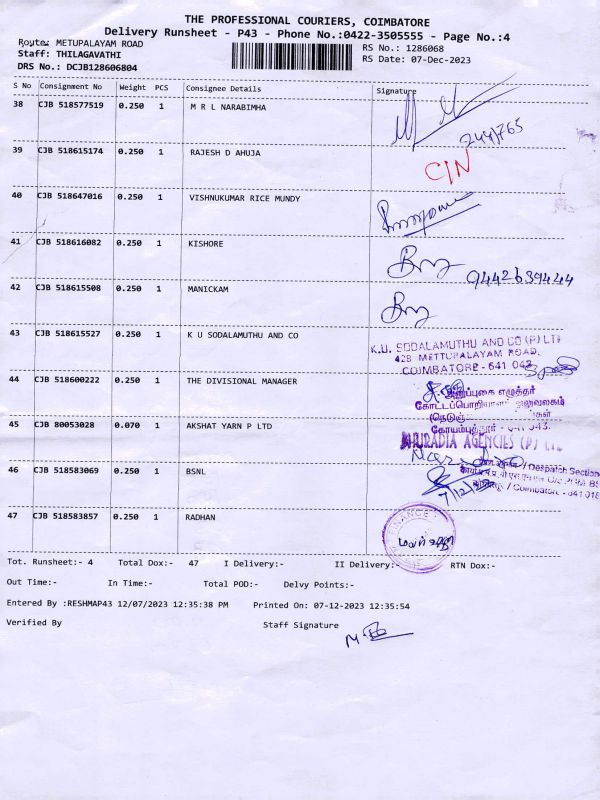 THE PROFESSIONAL COURIERS, COIMBATORE
Delivery Runsheet - P43 - Phone No.:0422-3505555 - Page No.:4
Route: METUPALAYAM ROAD
RS No.: 1286068
Staff: THILAGAVATHI
RS Date: 07-Dec-2023
DRS No.: DCJB128606804
S No Consignment No Weight PCS Consignee Details Signature
38 CJB 518577519 0.250 1 M R L NARABIMHA
244765
39 CJB 518615174 0.250 1 RAJESH D AHUJA
C/N
40 CJB 518647016 0.250 1 VISHNUKUMAR RICE MUNDY
41 CJB 518616082 0.250 1 KISHORE
9442639444
42 CJB 518615508 0.250 1 MANICKAM
43 CJB 518615527 0.250 1 K U SODALAMUTHU AND CO
K.U. SODALAMUTHU AND CO (P) LTD
42B METTUPALAYAM ROAD,
COIMBATORE - 641 043
44 CJB 518600222 0.250 1 THE DIVISIONAL MANAGER
அனுப்புகை எழுத்தர்
கோட்டப்பொறியாளர் அலுவலகம்
கோயம்புத்தூர் - 641 043.
45 CJB 80053028 0.070 1 AKSHAT YARN P LTD
BHURADIA AGENCIES (P) LTD
46 CJB 518583069 0.250 1 BSNL
/ Despatch Section
/ Coimbatore - 641 018
7/12/23
47 CJB 518583857 0.250 1 RADHAN
FINANCE
Tot. Runsheet:- 4 Total Dox:- 47 I Delivery:- II Delivery:- RTN Dox:-
Out Time:- In Time:- Total POD:- Delvy Points:-
Entered By :RESHMAP43 12/07/2023 12:35:38 PM Printed On: 07-12-2023 12:35:54
Verified By Staff Signature